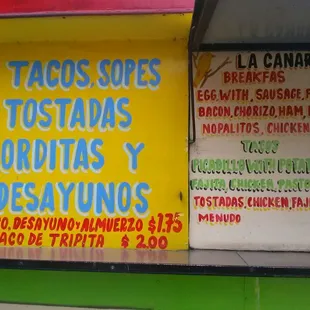 TACOS, SOPES
TOSTADAS
ORDITAS Y
DESAYUNOS
O. DESAYUNO Y ALMUERZO $1.75
ACO DE TRIPITA $2.00
LA CANAR
BREAKFAS
EGG, WITH, SAUSAGE, F
BACON, CHORIZO, HAM,
NOPALITOS, CHICKEN
TACOS
PICADILLO WITH POTAT
FAJITA, CHICKEN, PASTO
TOSTADAS, CHICKEN, FAJI
MENUDO